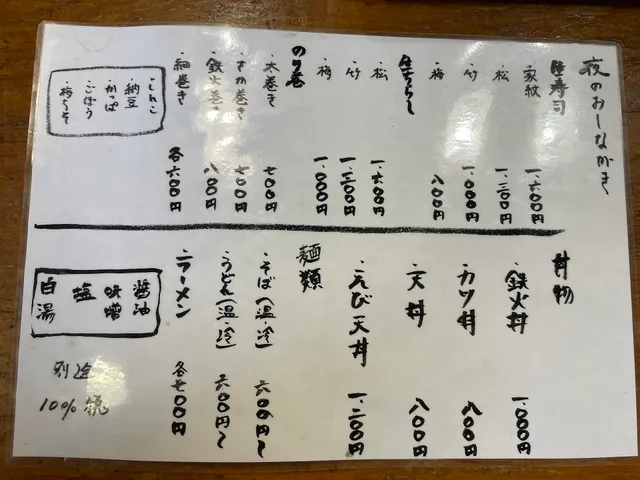 夜のおしながき
生寿司
・家紋 一.六〇〇円
・松 一.三〇〇円
・竹 一.〇〇〇円
・梅 八〇〇円
生ちらし
・松 一.六〇〇円
・竹 一.三〇〇円
・梅 一.〇〇〇円
のり巻
・太巻き 七〇〇円
・さか巻き 七〇〇円
・鉄火巻き 八〇〇円
・細巻き 各六〇〇円
・しんこ
・納豆
・かっぱ
・ごぼう
・梅しそ
丼物
・鉄火丼 一.〇〇〇円
・カツ丼 八〇〇円
・天丼 八〇〇円
・えび天丼 一.二〇〇円
麺類
・そば(温・冷) 六〇〇円〜
・うどん(温・冷) 六〇〇円〜
・ラーメン 各七〇〇円
醤油
味噌
塩
白湯
別途
10%税